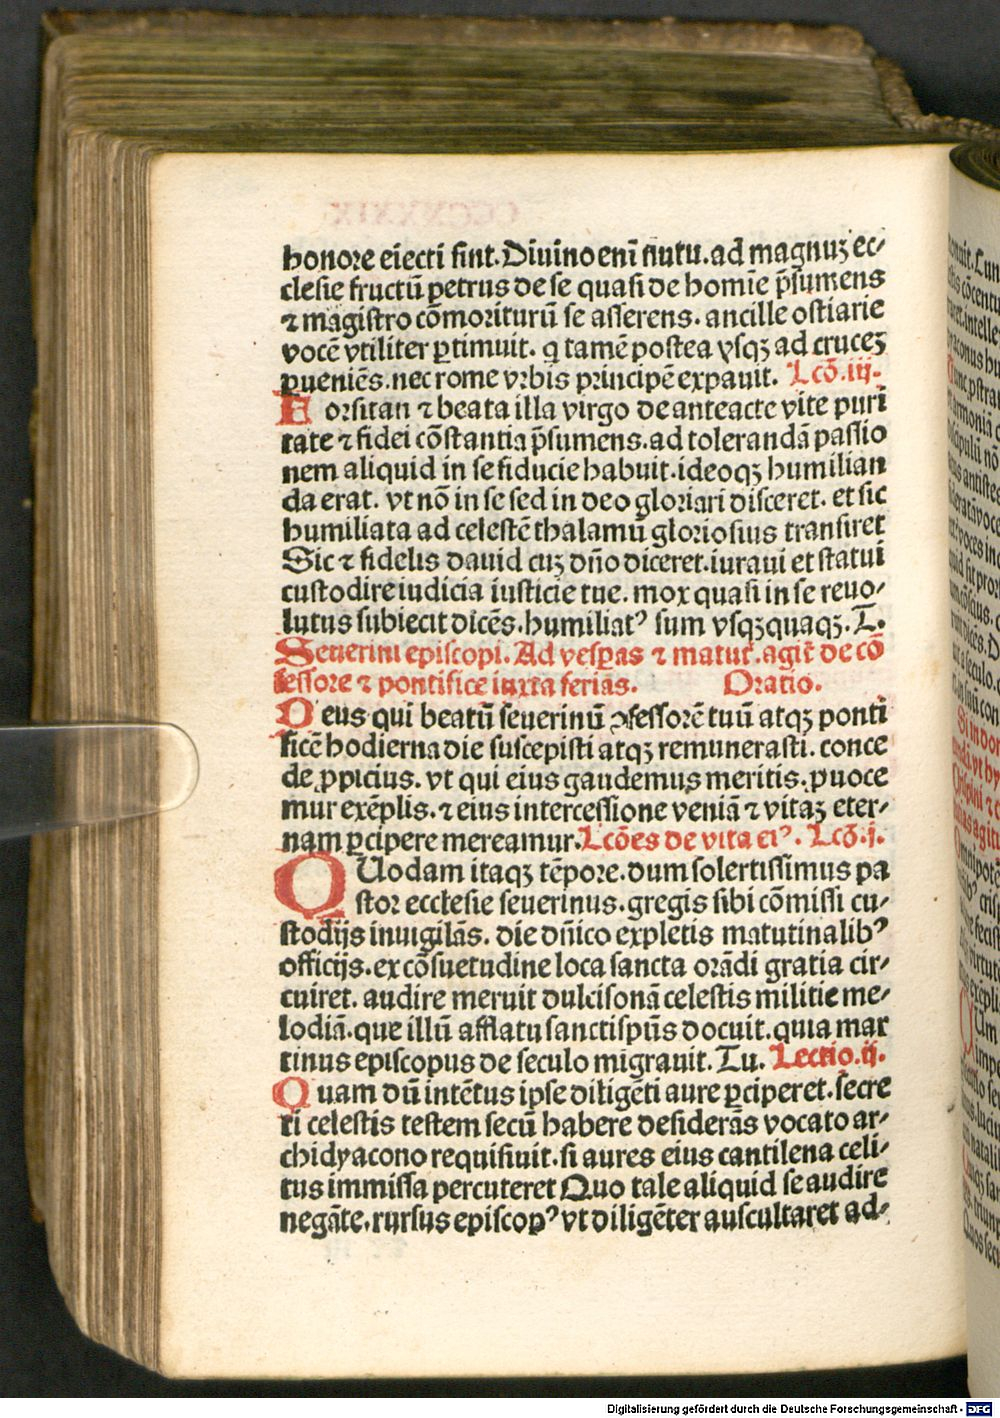 honore eiecti sint. Diuino enī nutu. ad magnuꝫ ec⸗
clesie fructū petrus de se quasi de homīe p̄sumens
⁊ magistro cōmoriturū se asserens. ancille ostiarie
vocē vtiliter ꝑtimuit. q tamē postea vsqꝫ ad cruceꝫ
ꝑueniēs. nec rome vrbis principē expauit. Lcō. iij.
Forsitan ⁊ beata illa virgo de anteacte vite puri
tate ⁊ fidei cōstantia p̄sumens. ad tolerandā passio
nem aliquid in se fiducie habuit. ideoqꝫ humilian
da erat. vt nō in se sed in deo gloriari disceret. et sic
humiliata ad celestē thalamū gloriosius transiret
Sic ⁊ fidelis dauid cuꝫ dn̄o diceret. iuraui et statui
custodire iudicia iusticie tue. mox quasi in se reuo⸗
lutus subiecit dicēs. humiliatꝰ sum vsqꝫquaqꝫ. T.
Seuerini episcopi. Ad vesꝑas ⁊ matut̄. agit̄ de cō
fessore ⁊ pontifice iuxta ferias. Oratio.
Deus qui beatū seuerinū ꝯfessorē tuū atqꝫ ponti
ficē hodierna die suscepisti atqꝫ remunerasti. conce
de ꝓpicius. vt qui eius gaudemus meritis. ꝓuoce
mur exēplis. ⁊ eius intercessione veniā ⁊ vitaꝫ eter⸗
nam ꝑcipere mereamur. Lcōes de vita eiꝰ. Lcō. j.
QUodam itaqꝫ tēpore. dum solertissimus pa
stor ecclesie seuerinus. gregis sibi cōmissi cu⸗
stodijs inuigilās. die dn̄ico expletis matutinalibꝰ
officijs. ex cōsuetudine loca sancta orādi gratia cir⸗
cuiret. audire meruit dulcisonā celestis militie me⸗
lodiā. que illū afflatu sancti sp̄us docuit. quia mar
tinus episcopus de seculo migrauit. Tu. Lectio. ij.
Quam dū intētus ipse diligēti aure ꝑciperet. secre
ti celestis testem secū habere desiderās vocato ar⸗
chidyacono requisiuit. si aures eius cantilena celi⸗
tus immissa percuteret Quo tale aliquid se audire
negāte. rursus episcopꝰ vt diligēter auscultaret ad⸗
Digitalisierung gefördert durch die Deutsche Forschungsgemeinschaft - DFG